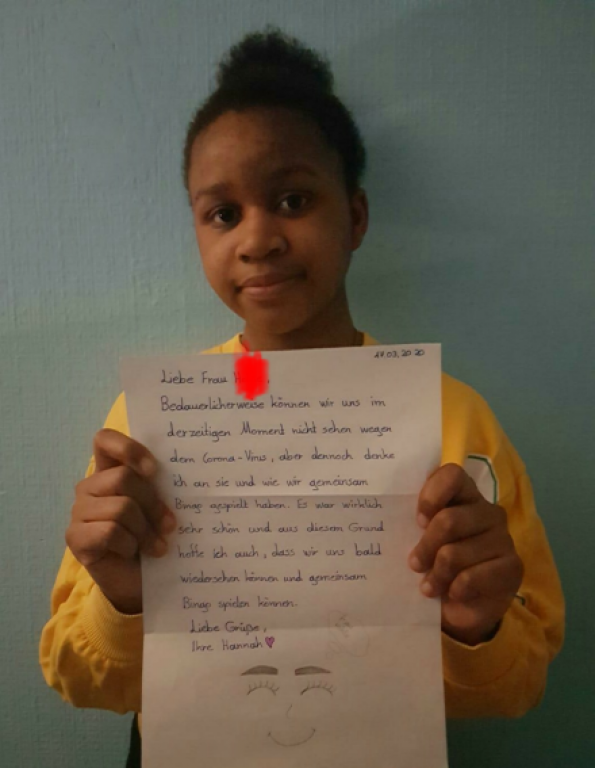 17.03.2020
Liebe Frau
Bedauerlicherweise können wir uns im
derzeitigen Moment nicht sehen wegen
dem Corona-Virus, aber dennoch denke
ich an sie und wie wir gemeinsam
Bingo gespielt haben. Es war wirklich
sehr schön und aus diesem Grund
hoffe ich auch, dass wir uns bald
wiedersehen können und gemeinsam
Bingo spielen können.
Liebe Grüße,
Ihre Hannah